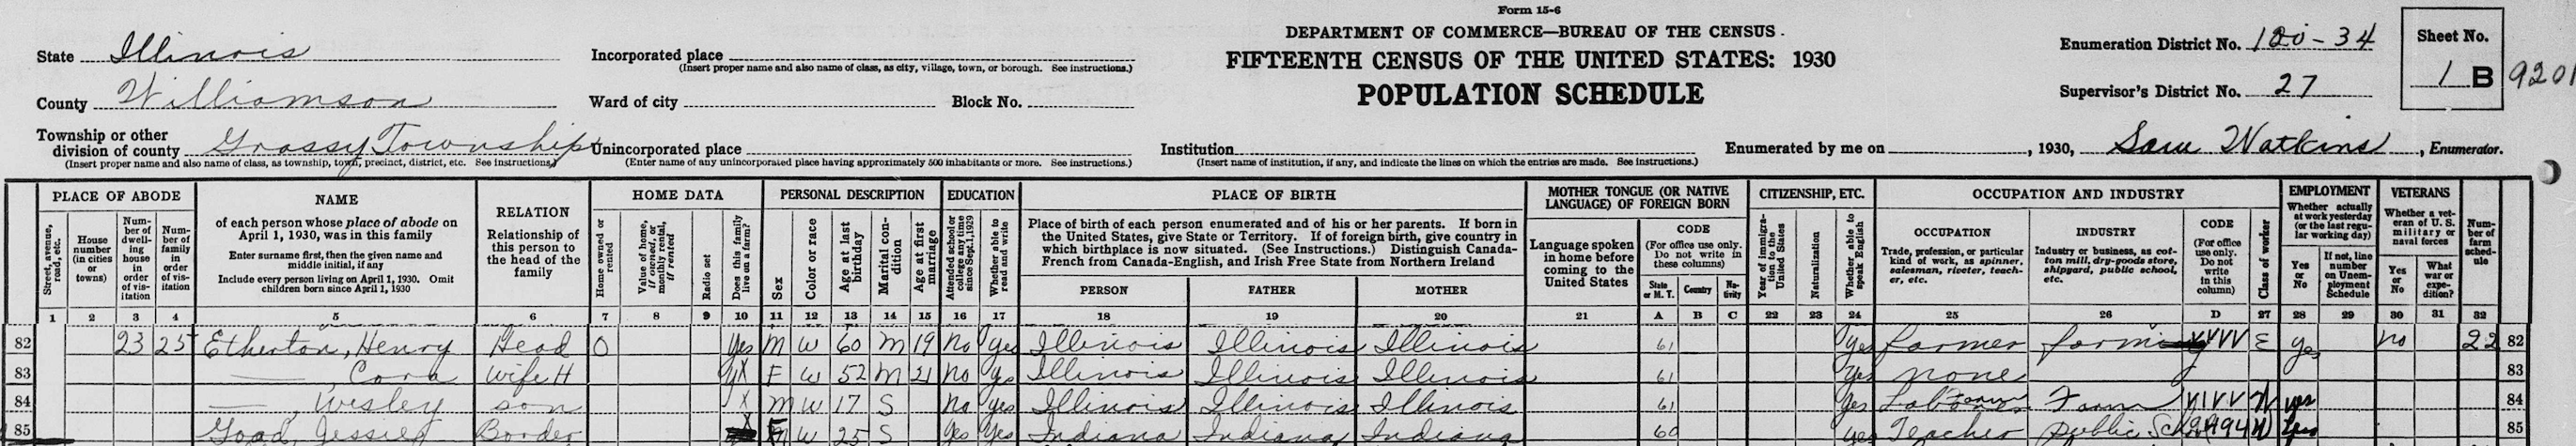 Form 15-6
DEPARTMENT OF COMMERCE—BUREAU OF THE CENSUS
FIFTEENTH CENSUS OF THE UNITED STATES: 1930
POPULATION SCHEDULE
State Illinois
County Williamson
Township or other division of county Grassy Township
(Insert proper name and also name of class, as township, town, precinct, district, etc. See instructions)
Incorporated place
(Insert proper name and also name of class, as city, village, town, or borough. See instructions.)
Ward of city Block No.
Unincorporated place
(Enter name of any unincorporated place having approximately 500 inhabitants or more. See instructions.)
Institution
(Insert name of institution, if any, and indicate the lines on which the entries are made. See instructions.)
Enumeration District No. 100-34
Supervisor's District No. 27
Sheet No.
1 B
9201
Enumerated by me on , 1930, Sam Watkins , Enumerator.
PLACE OF ABODE
Street, avenue, road, etc.
House number (in cities or towns)
Number of dwelling house in order of visitation
Number of family in order of visitation
NAME
of each person whose place of abode on April 1, 1930, was in this family
Enter surname first, then the given name and middle initial, if any
Include every person living on April 1, 1930. Omit children born since April 1, 1930
RELATION
Relationship of this person to the head of the family
HOME DATA
Home owned or rented
Value of home, if owned, or monthly rental, if rented
Radio set
Does this family live on a farm?
PERSONAL DESCRIPTION
Sex
Color or race
Age at last birthday
Marital condition
Age at first marriage
EDUCATION
Attended school or college any time since Sept. 1, 1929
Whether able to read and write
PLACE OF BIRTH
Place of birth of each person enumerated and of his or her parents. If born in the United States, give State or Territory. If of foreign birth, give country in which birthplace is now situated. (See Instructions.) Distinguish Canada-French from Canada-English, and Irish Free State from Northern Ireland
PERSON FATHER MOTHER
MOTHER TONGUE (OR NATIVE LANGUAGE) OF FOREIGN BORN
Language spoken in home before coming to the United States
CODE
(For office use only. Do not write in these columns)
State or M. T. Country Nativity
CITIZENSHIP, ETC.
Year of immigration to the United States
Naturalization
Whether able to speak English
OCCUPATION AND INDUSTRY
OCCUPATION
Trade, profession, or particular kind of work, as spinner, salesman, riveter, teacher, etc.
INDUSTRY
Industry or business, as cotton mill, dry-goods store, shipyard, public school, etc.
CODE
(For office use only. Do not write in this column)
Class of worker
EMPLOYMENT
Whether actually at work yesterday (or the last regular working day)
Yes or No
If not, line number on Unemployment Schedule
VETERANS
Whether a veteran of U. S. military or naval forces
Yes or No
What war or expedition?
Number of farm schedule
1 2 3 4 5 6 7 8 9 10 11 12 13 14 15 16 17 18 19 20 21 A B C 22 23 24 25 26 D 27 28 29 30 31 32
82 23 25 Etherton, Henry Head O Yes M W 60 M 19 No Yes Illinois Illinois Illinois 61 Yes farmer farming VVVV E yes no 22 82
83 —, Cora Wife H X F W 52 M 21 No Yes Illinois Illinois Illinois 61 Yes none 83
84 —, Wesley son X M W 17 S No Yes Illinois Illinois Illinois 61 Yes Laborer Farm VIVV W yes 84
85 Goad, Jessie Border X W 25 S Yes Yes Indiana Indiana Indiana 60 yes Teacher public Sch 9494 W Yes 85